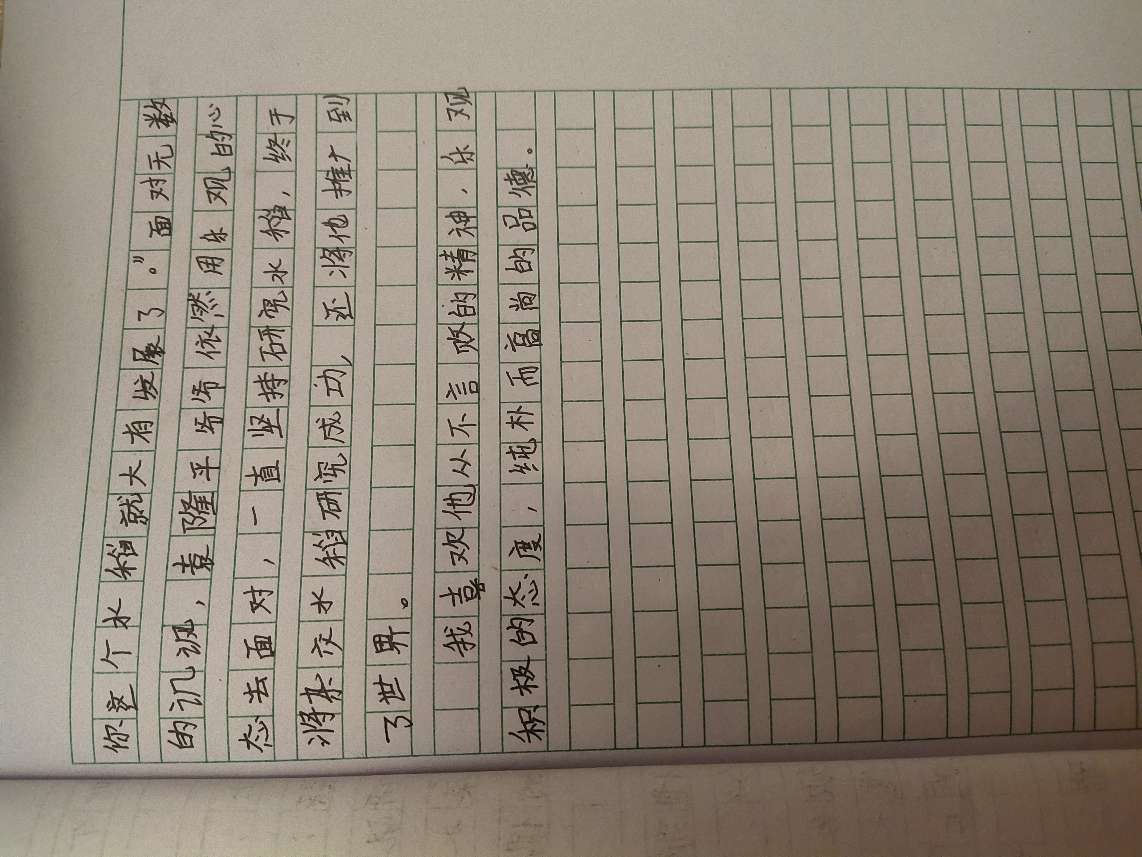 你这个水稻就大有发展了。”面对无数
的讥讽，袁隆平爷爷依然用乐观的心
态去面对，一直坚持研究水稻，终于
将杂交水稻研究成功，还将他推广到
了世界。
我喜欢他从不言败的精神，乐观
积极的态度，纯朴而高尚的品德。